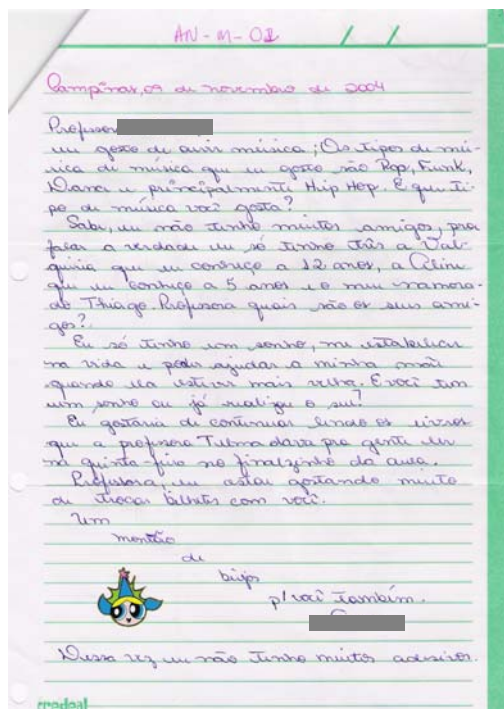 AN-M-02 / /
Campinas, 09 de novembro de 2004
Professora
eu gosto de ouvir música; Os tipos de mú-
sica de música que eu gosto são Pop, Funk,
Dance e principalmente Hip Hop. E que ti-
po de música você gosta?
Sabe, eu não tenho muitos amigos, pra
falar a verdade eu só tenho três a Val-
quiria que eu conheço a 12 anos, a Celine
que eu conheço a 5 anos e o meu namora-
do Thiago. Professora quais são os seus ami-
gos?
Eu só tenho um sonho, me estabelecer
na vida e poder ajudar a minha mãe
quando ela estiver mais velha. E você tem
um sonho ou já realizou o seu?
Eu gostaria de continuar lendo os livros
que a professora Telma dava pra gente ler
na quinta-feira no finalzinho da aula.
Professora, eu estou gostando muito
de trocar bilhetes com você.
Um
montão
de
beijos
p/ você também.
Dessa vez eu não tenho muitos adesivos.
credeal